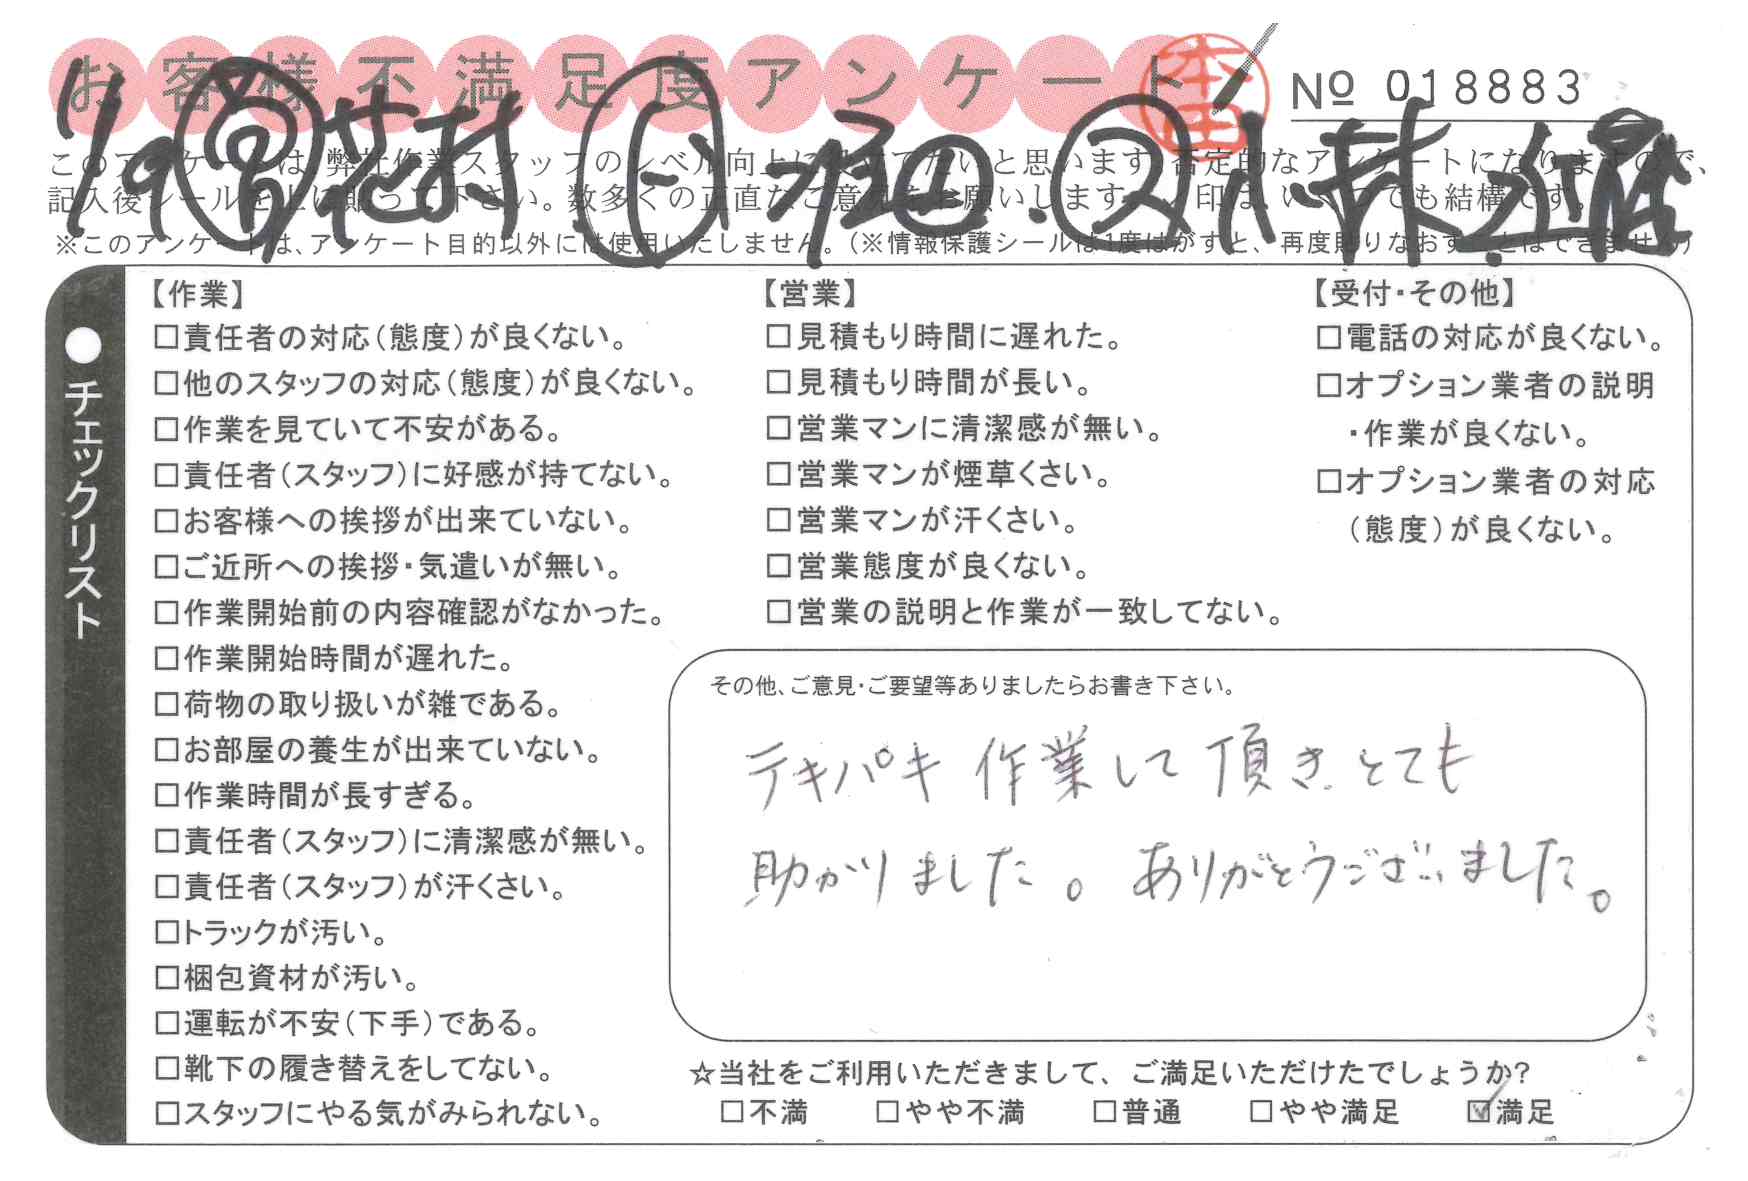 お客様不満足度アンケート
本田
№ 018883
1/9 花村 小林 近藤
このアンケートは、弊社作業スタッフのレベル向上に役立てたいと思います。否定的なアンケートになりますので、
記入後シールを上に貼って下さい。数多くの正直なご意見をお願いします。✓印は、いくつでも結構です。
※このアンケートは、アンケート目的以外には使用いたしません。(※情報保護シールは1度はがすと、再度貼りなおすことはできません)
●チェックリスト
【作業】
□責任者の対応(態度)が良くない。
□他のスタッフの対応(態度)が良くない。
□作業を見ていて不安がある。
□責任者(スタッフ)に好感が持てない。
□お客様への挨拶が出来ていない。
□ご近所への挨拶・気遣いが無い。
□作業開始前の内容確認がなかった。
□作業開始時間が遅れた。
□荷物の取り扱いが雑である。
□お部屋の養生が出来ていない。
□作業時間が長すぎる。
□責任者(スタッフ)に清潔感が無い。
□責任者(スタッフ)が汗くさい。
□トラックが汚い。
□梱包資材が汚い。
□運転が不安(下手)である。
□靴下の履き替えをしてない。
□スタッフにやる気がみられない。
【営業】
□見積もり時間に遅れた。
□見積もり時間が長い。
□営業マンに清潔感が無い。
□営業マンが煙草くさい。
□営業マンが汗くさい。
□営業態度が良くない。
□営業の説明と作業が一致してない。
【受付・その他】
□電話の対応が良くない。
□オプション業者の説明
・作業が良くない。
□オプション業者の対応
(態度)が良くない。
その他、ご意見・ご要望等ありましたらお書き下さい。
テキパキ作業して頂きとても
助かりました。ありがとうございました。
☆当社をご利用いただきまして、ご満足いただけたでしょうか?
□不満 □やや不満 □普通 □やや満足 ☑満足